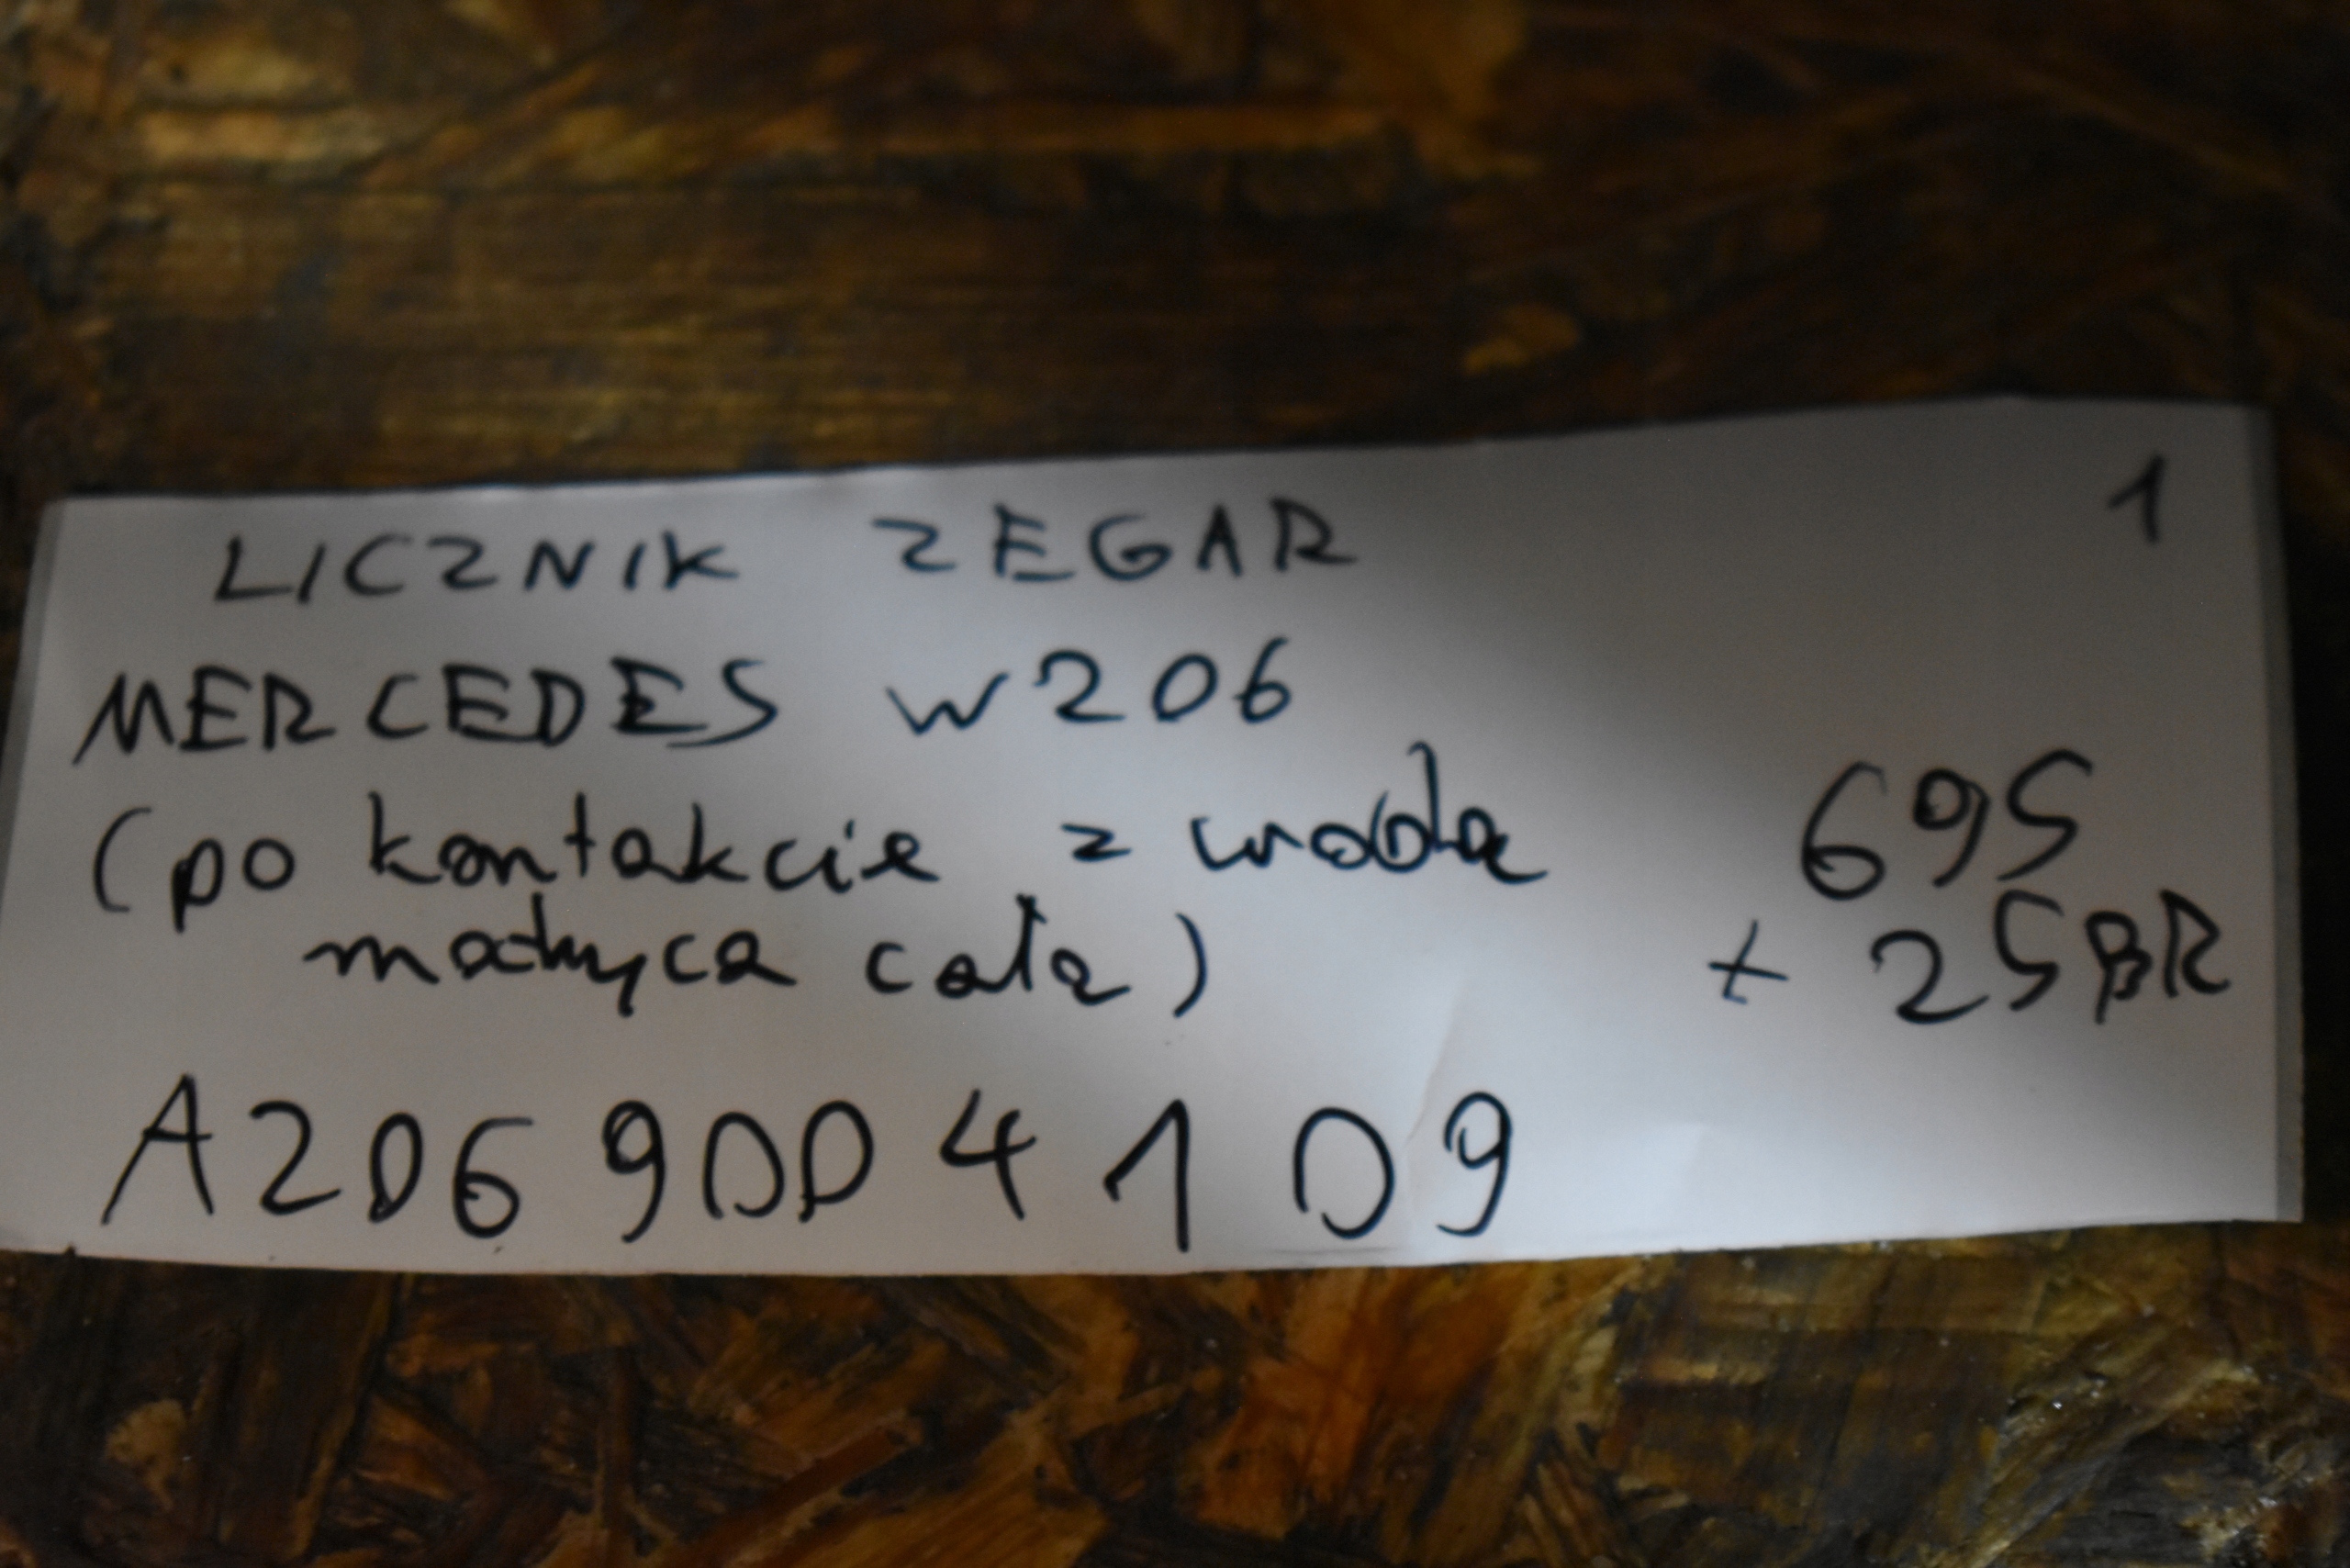 LICZNIK ZEGAR 1
MERCEDES W206
(po kontakcie z wodą 695
matryca cała) + 25 BR
A206 900 4 1 09